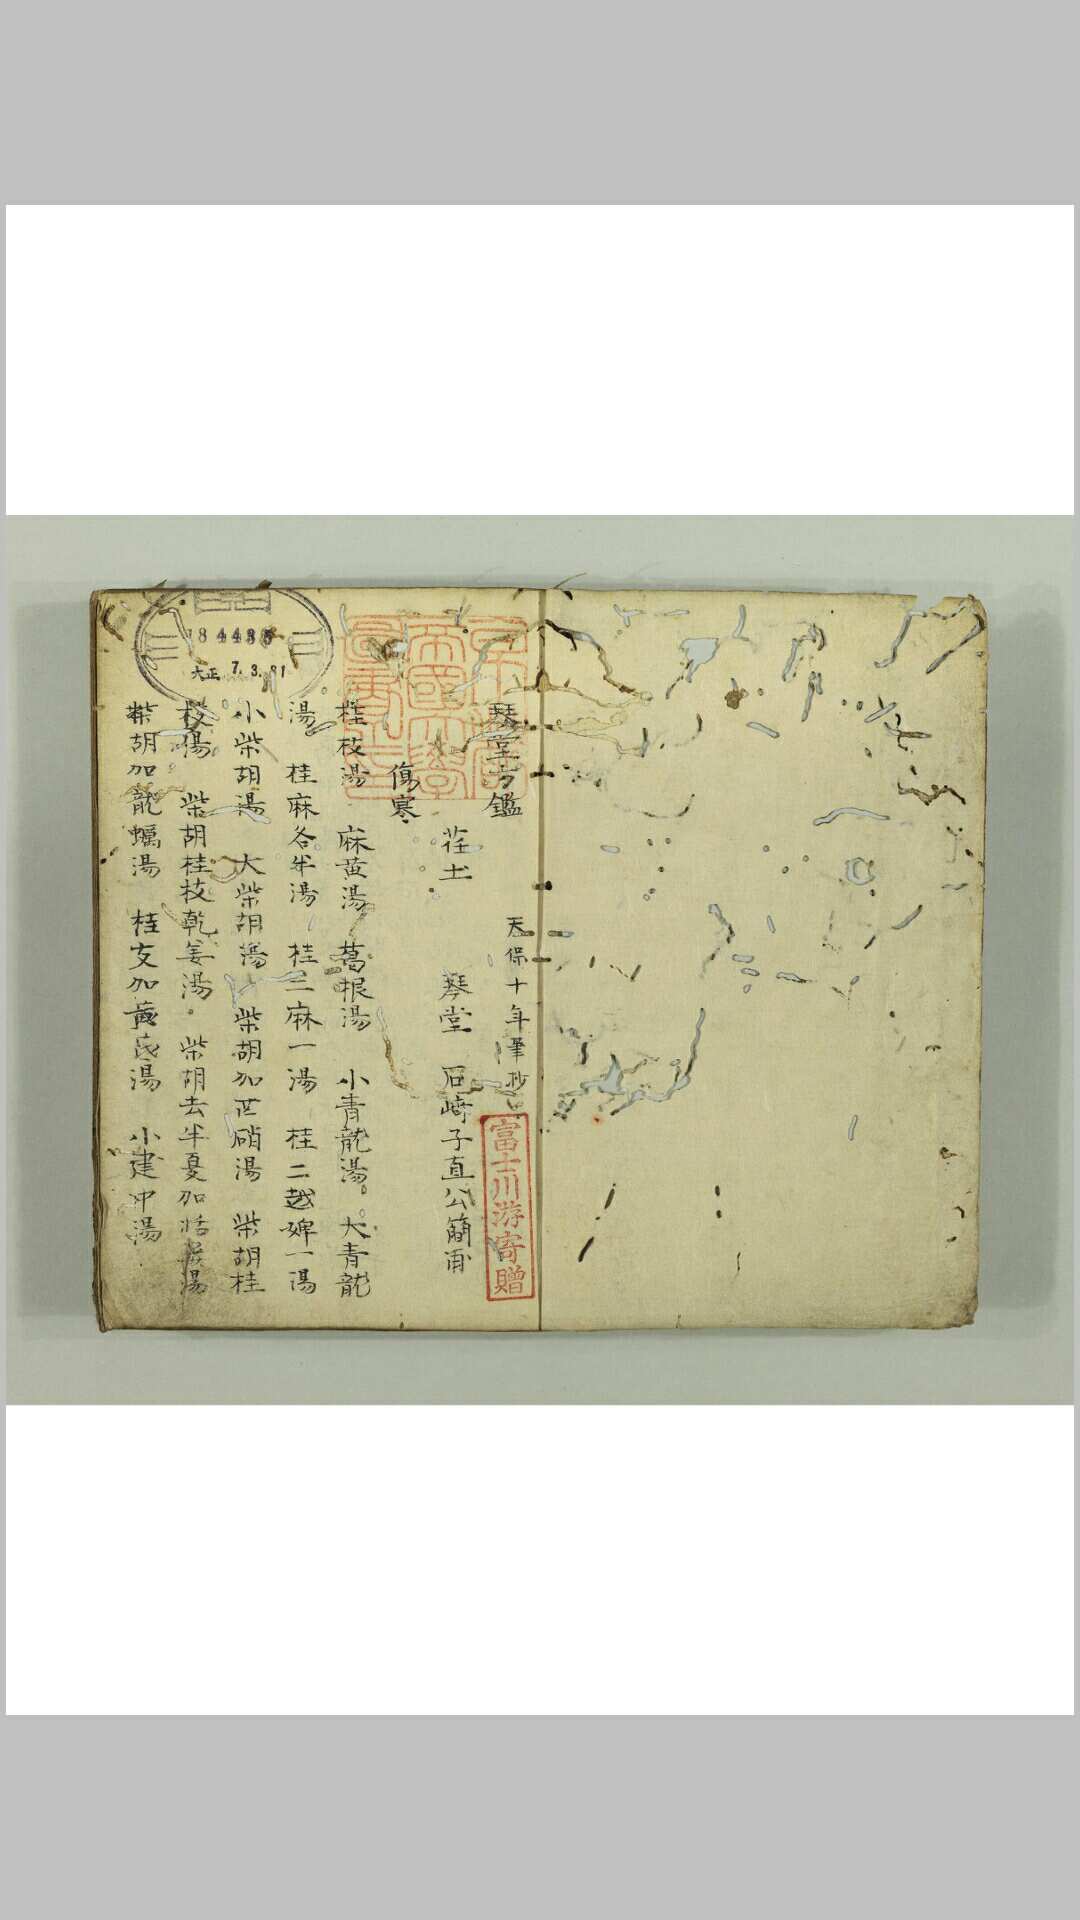 琴堂方鑑
天保十年筆抄
富士川游寄贈
荏土 琴堂 石崎子直公簡甫
傷寒
桂枝湯 麻黄湯 葛根湯 小青龍湯 大青龍
湯 桂麻各半湯 桂二麻一湯 桂二越婢一湯
小柴胡湯 大柴胡湯 柴胡加芒硝湯 柴胡桂
枝湯 柴胡桂枝乾姜湯 柴胡去半夏加栝蔞湯
柴胡加龍蠣湯 桂支加黄芪湯 小建中湯
184435
大正 7.3.31